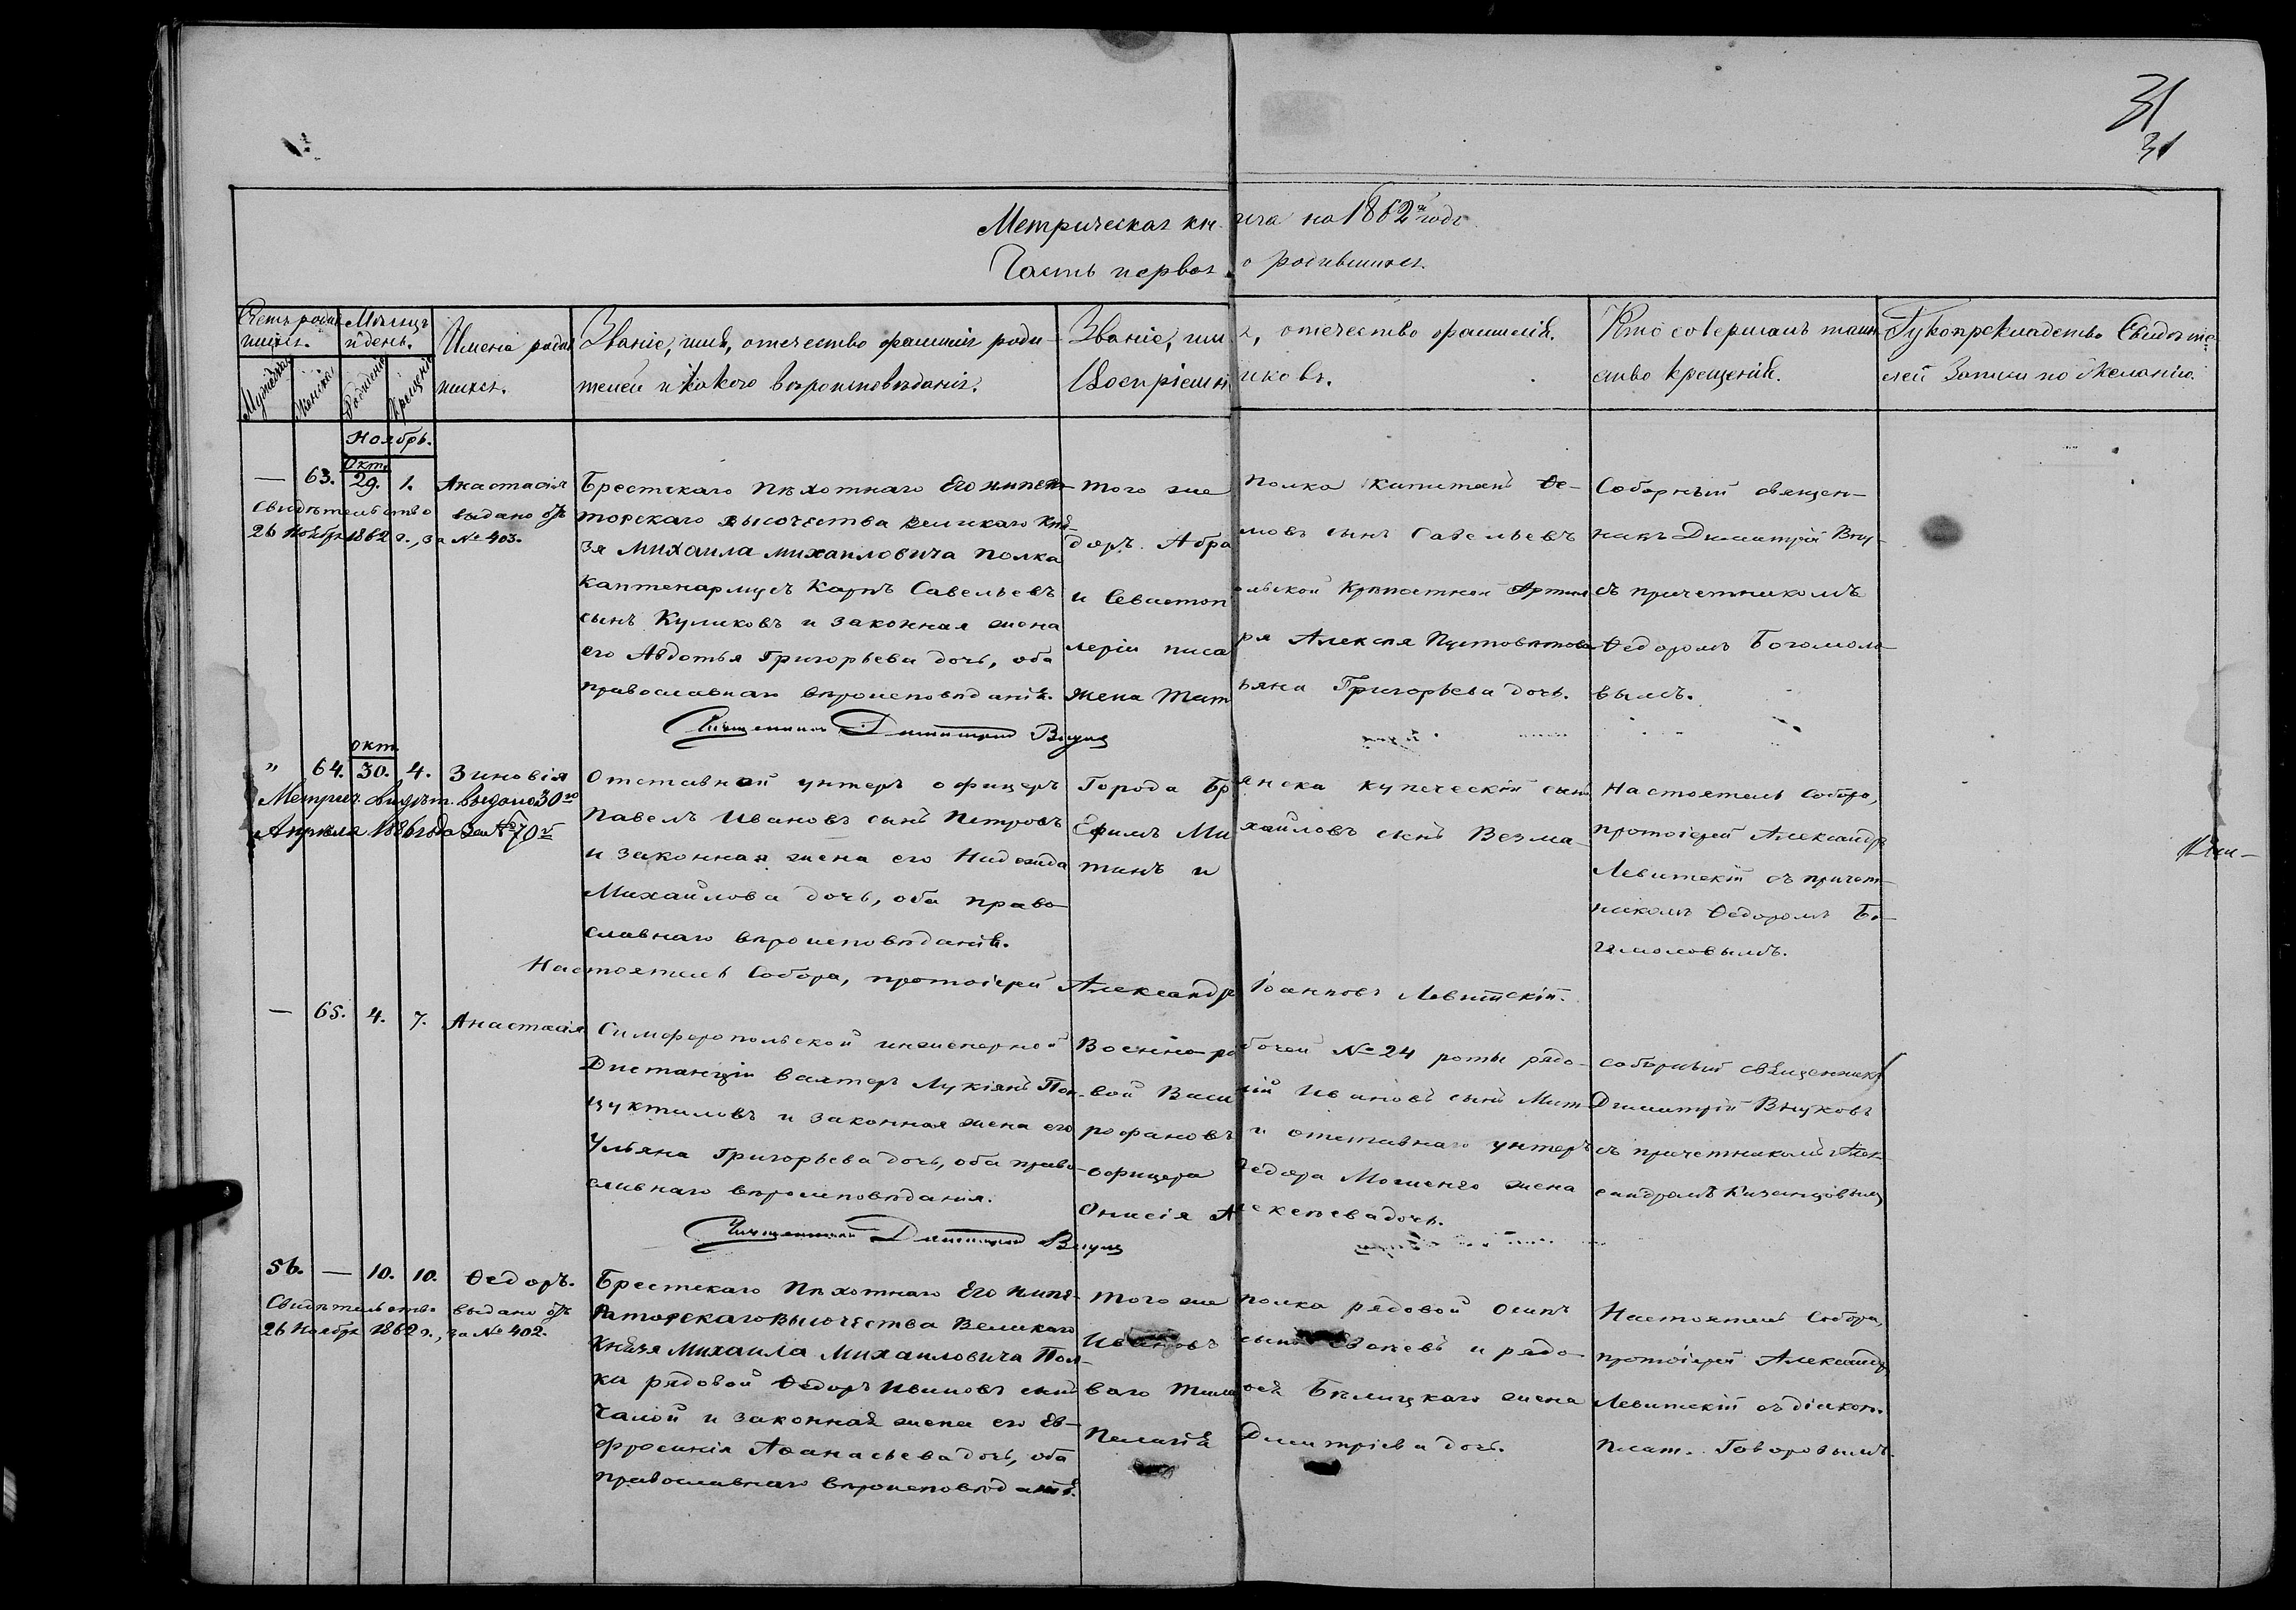 31
31
Метрическая книга на 1862й годъ
Часть первая о родившихся.
Счетъ родившихся.
Мужеска
Женска
Мѣсяцъ и день.
Рожденія
Крещенія
Имена родившихся.
Званіе, имя, отечество фамилія родителей и какого вѣроисповѣданія.
Званіе, имя, отечество фамилія
Воспріемниковъ.
Кто совершалъ таинство крещенія.
Рукоприкладство Свидѣтелей Записи по желанію.
Ноябрь.
Окт.
— 63. 29. 1. Анастасія
Свидѣтельство выдано
26 Ноября 1862 г., за № 403.
Брестскаго Пѣхотнаго Его Импера-
торскаго высочества великаго Кня-
зя Михаила Михаиловича полка
каптенармусъ Карпъ Савельевъ
сынъ Куликовъ и законная жена
его Авдотья Григорьева дочь, оба
православнаго вѣроисповѣданія.
Того же полка капитанъ Ѳе-
доръ Абрамовъ сынъ Савельевъ
и Севастопольской Крѣпостной Артил-
леріи писаря Алексѣя Пустовитова
жена Татьяна Григорьева дочь.
Соборный священ-
никъ Димитрій Вну-
съ причетникомъ
Ѳедоромъ Богомоло-
вымъ.
Священникъ Димитрій Внуковъ
окт.
" 64. 30. 4. Зиновія
Метрич. Свидѣт. выдано 30го
Апрѣля 1886 года за № 70й
Отставной унтеръ офицеръ
Павелъ Ивановъ сынъ Петровъ
и законная жена его Надежда
Михайлова дочь, оба право-
славнаго вѣроисповѣданія.
Города Брянска купеческій сынъ
Ефимъ Михайловъ сынъ Везма-
тинъ и
Настоятель Собора,
протоіерей Александръ
Левитскій съ причет-
никомъ Ѳедоромъ Бо-
гомоловымъ.
Настоятель Собора, протоіерей Александръ Іоанновъ Левитскій.
— 65. 4. 7. Анастасія
Симферопольской инженерной
Дистанціи вахтеръ Лукіянъ
и законная жена его
Ульяна Григорьева дочь, оба право-
славнаго вѣроисповѣданія.
Военно-рабочей № 24 роты рядо-
вой Василій Ивановъ сынъ Мит-
рофановъ и отставнаго унтеръ
офицера Ѳедора жена
Онисія Алексѣева дочь.
соборный священникъ
Димитрій Внуковъ
съ причетникомъ Алек-
сандромъ
Священникъ Димитрій Внуковъ
56. — 10. 10. Ѳедоръ.
Свидѣтельство выдано
26 Ноября 1862 г., за № 402.
Брестскаго Пѣхотнаго Его Импе-
раторскаго Высочества Великаго
Князя Михаила Михаиловича Пол-
ка рядовой Ѳедоръ Ивановъ сынъ
Чалой и законная жена его Ев-
фросинія Аѳанасьева дочь, оба
православнаго вѣроисповѣданія.
Того же полка рядовой Осипъ
Ивановъ сынъ и рядо-
ваго Бѣлицкаго жена
Пелагія Димитріева дочь.
Настоятель Собора,
протоіерей Александръ
Левитскій съ діакон.
Плат. Говоровымъ.